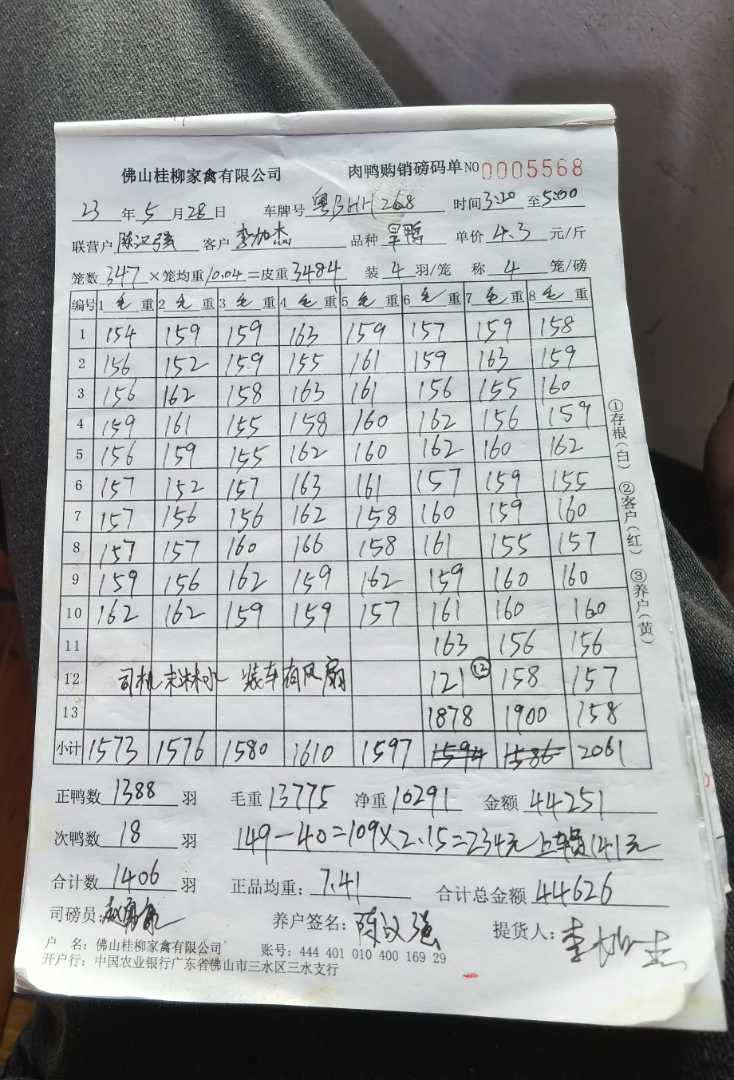 佛山桂柳家禽有限公司 肉鸭购销磅码单 NO 0005568
23 年 5 月 28 日 车牌号 粤 268 时间 3:20 至 5:00
联营户 陈汉强 客户 李加杰 品种 旱鸭 单价 4.3 元/斤
笼数 347 ×笼均重 10.04 =皮重 3484 装 4 羽/笼 称 4 笼/磅
编号 1 毛 重 2 毛 重 3 毛 重 4 毛 重 5 毛 重 6 毛 重 7 毛 重 8 毛 重
1 154 159 159 163 159 157 159 158
2 156 152 159 155 161 159 163 159
3 156 162 158 163 161 156 155 160
4 159 161 155 158 160 162 156 159
5 156 159 155 162 160 162 160 162
6 157 152 157 163 161 157 159 155
7 157 156 156 162 158 160 159 160
8 157 157 160 166 158 161 155 157
9 159 156 162 159 162 159 160 160
10 162 162 159 159 157 161 160 160
11 163 156 156
12 司机未淋水 装车有风扇 121 ⑫ 158 157
13 1878 1900 158
小计 1573 1576 1580 1610 1597 1594 1586 2061
正鸭数 1388 羽 毛重 13775 净重 10291 金额 44251
次鸭数 18 羽 149-40=109×2.15=234元 上车费141元
合计数 1406 羽 正品均重: 7.41 合计总金额 44626
司磅员: 养户签名: 陈汉强 提货人: 李加杰
户 名: 佛山桂柳家禽有限公司 账号: 444 401 010 400 169 29
开户行: 中国农业银行广东省佛山市三水区三水支行
①存根(白) ②客户(红) ③养户(黄)